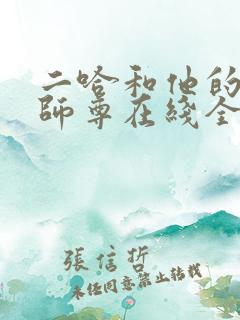 二哈和他的
師尊在线全
張信哲
未经同意禁止转载